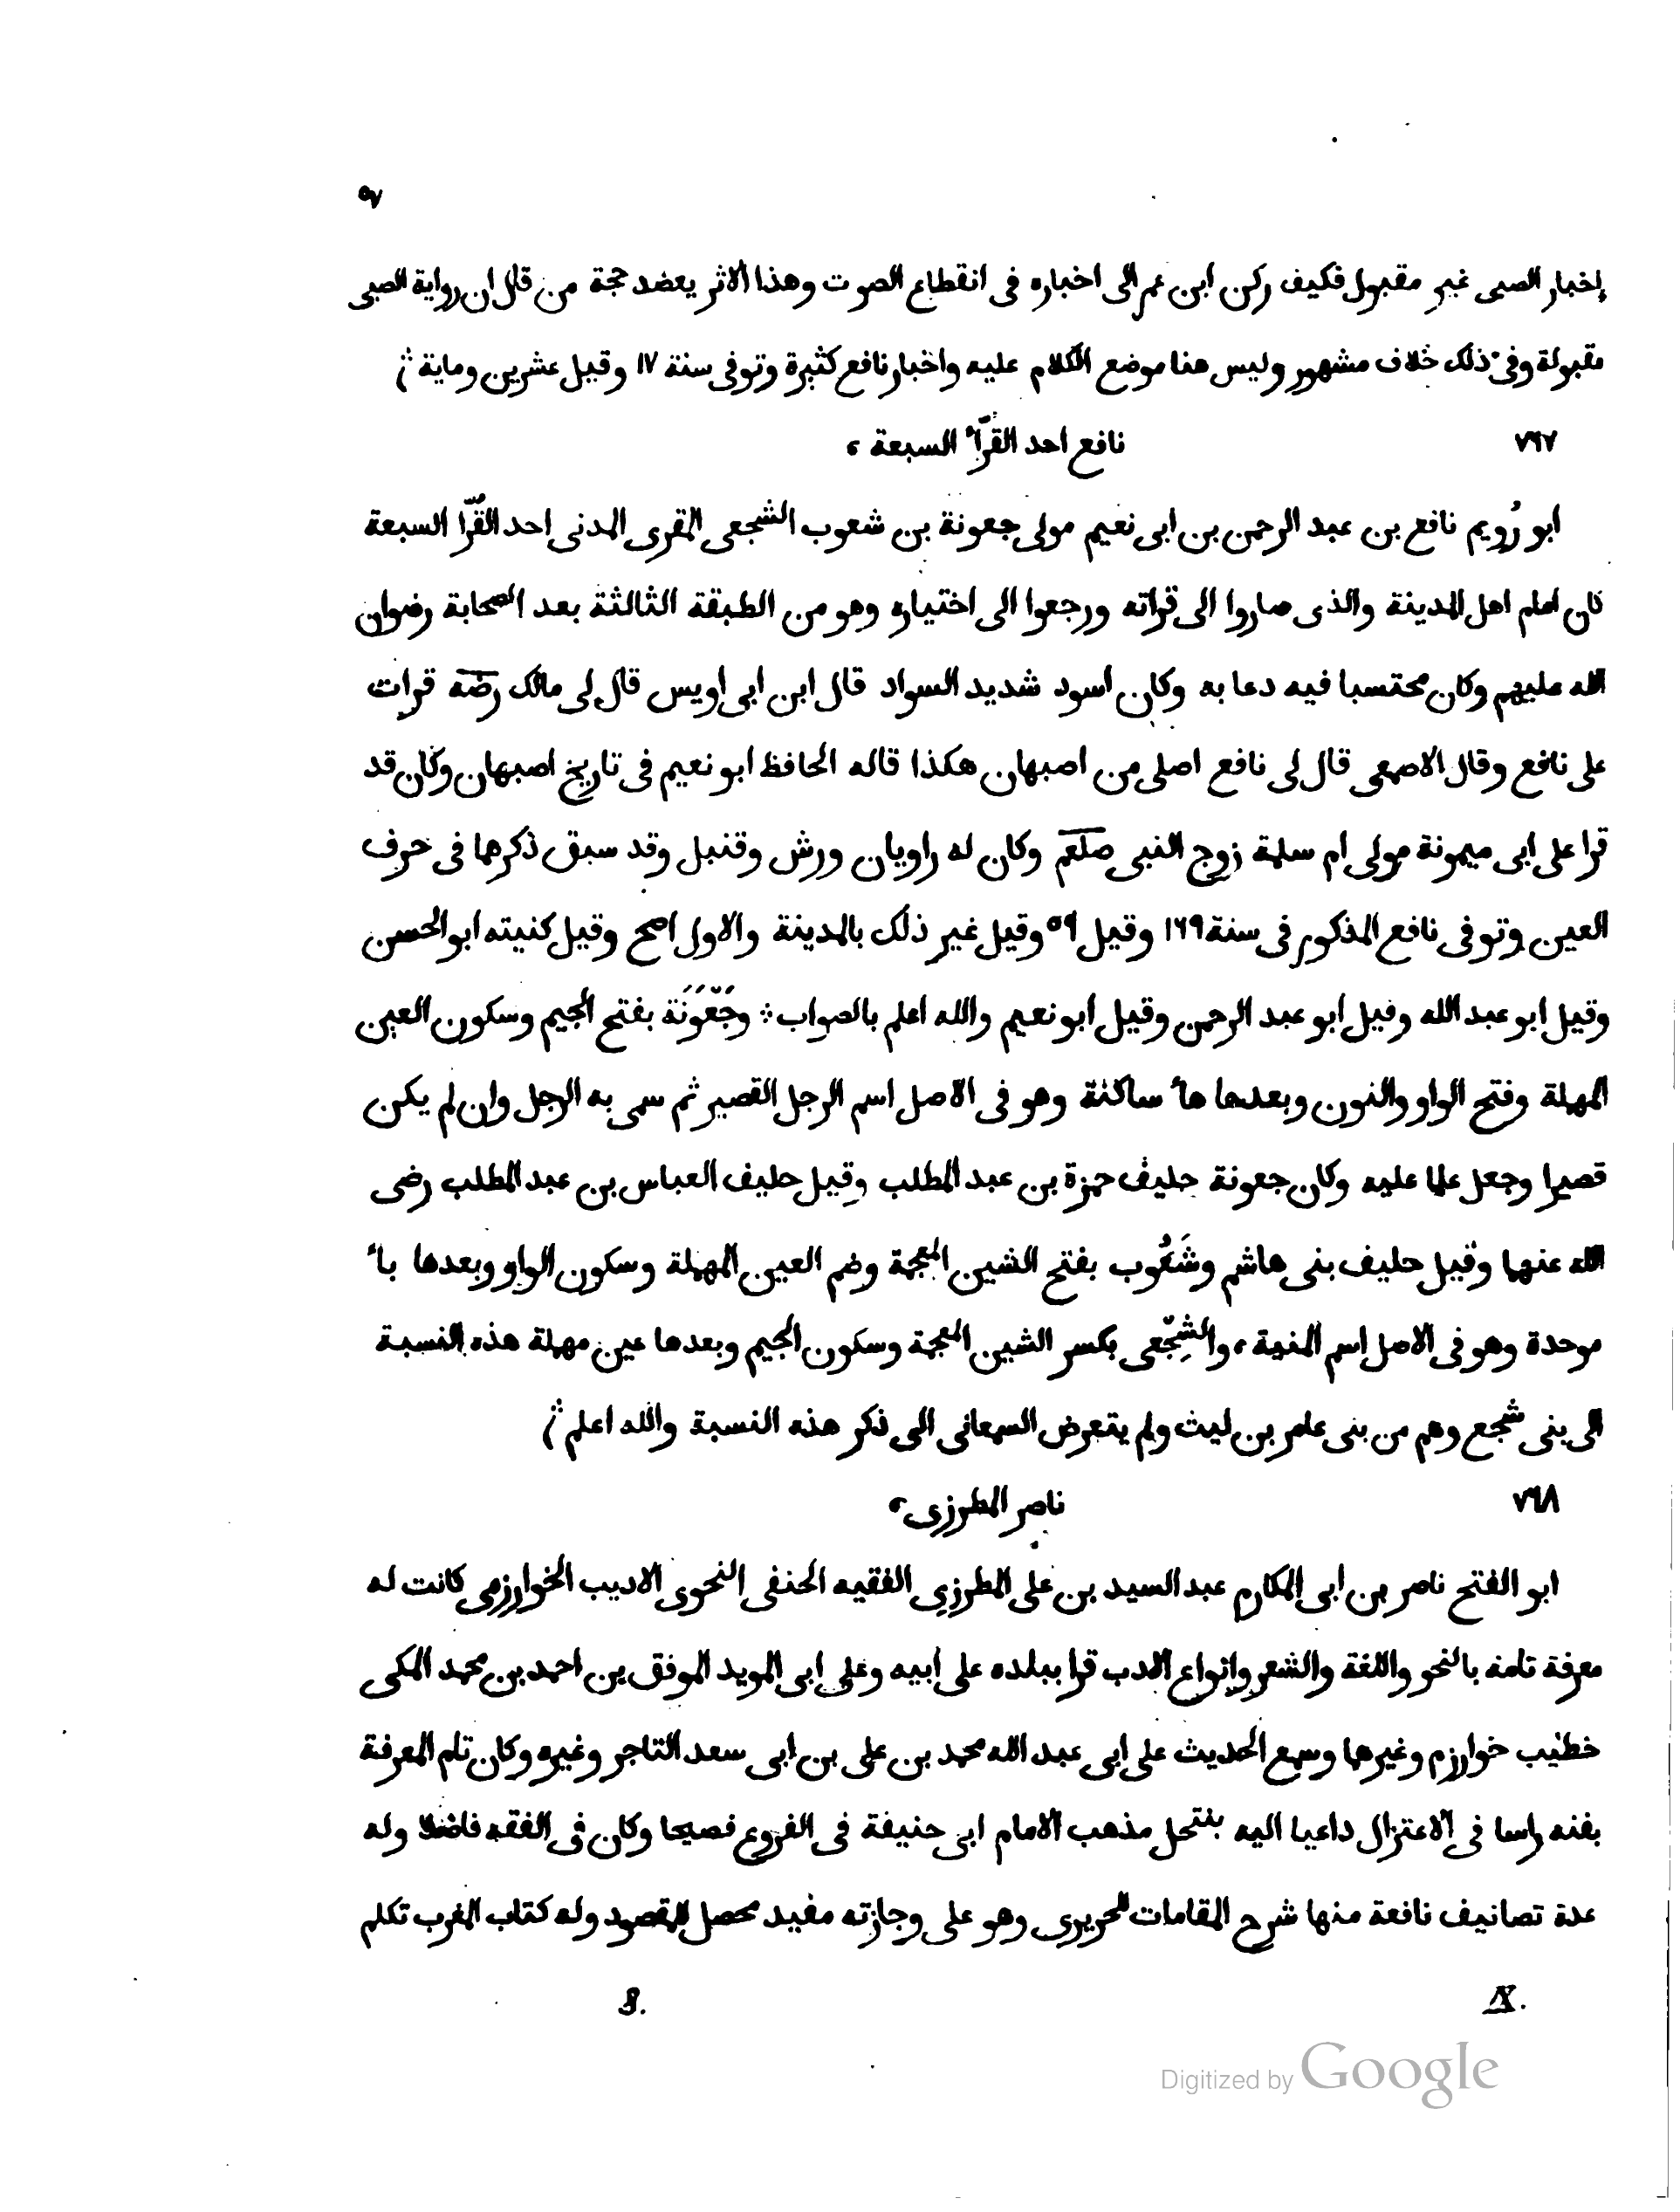 ٥٧
إخبار الصبى غير مقبول فكيف ركن ابن عمر الى اخباره فى انقطاع الصوت وهذا الاثر يعضد حجة من قال ان رواية الصبى
مقبولة وفى ذلك خلاف مشهور وليس هنا موضع الكلام عليه واخبار نافع كثيرة وتوفى سنة ١٧ وقيل عشرين وماية ؞
٧٦٧ نافع احد القرّآء السبعة ،
ابو رُويم نافع بن عبد الرحمن بن ابى نعيم مولى جعونة بن شعوب الشجعى المقرى المدنى احد القُرّا السبعة
كان امام اهل المدينة والذى صاروا الى قراته ورجعوا الى اختياره وهو من الطبقة الثالثة بعد الصحابة رضوان
الله عليهم وكان محتسبا فيه دعابه وكان اسود شديد السواد قال ابن ابى اويس قال لى مالك رضه قرات
على نافع وقال الاصمعى قال لى نافع اصلى من اصبهان هكذا قاله الحافظ ابو نعيم فى تاريخ اصبهان وكان قد
قرا على ابى ميمونة مولى ام سلمة زوج النبى صلعم وكان له راويان ورش وقنبل وقد سبق ذكرهما فى حرف
العين وتوفى نافع المذكور فى سنة ١٦٩ وقيل ٥٩ وقيل غير ذلك بالمدينة والاول اصح وقيل كنيته ابو الحسن
وقيل ابو عبد الله وقيل ابو عبد الرحمن وقيل ابو نعيم والله اعلم بالصواب ؞ وجَعْوَنَة بفتح الجيم وسكون العين
المهملة وفتح الواو والنون وبعدها هآء ساكنة وهو فى الاصل اسم الرجل القصير ثم سمى به الرجل وان لم يكن
قصيرا وجعل علما عليه وكان جعونة حليف حمزة بن عبد المطلب وقيل حليف العباس بن عبد المطلب رضى
الله عنهما وقيل حليف بنى هاشم وشَعُوب بفتح الشين المعجمة وضم العين المهملة وسكون الواو وبعدها بآء
موحدة وهو فى الاصل اسم المنية ، والشِجْعى بكسر الشين المعجمة وسكون الجيم وبعدها عين مهملة هذه النسبة
الى بنى شجع وهم من بنى عامر بن ليث ولم يتعرض السمعانى الى ذكر هذه النسبة والله اعلم ؞
٧٦٨ ناصر المطرزى ،
ابو الفتح ناصر بن ابى المكارم عبد السيد بن على المطرزى الفقيه الحنفى النحوى الاديب الخوارزمى كانت له
معرفة تامه بالنحو واللغة والشعر وانواع الادب قرا ببلده على ابيه وعلى ابى المويد الموفق بن احمد بن محمد المكى
خطيب خوارزم وغيرهما وسمع الحديث على ابى عبد الله محمد بن على بن ابى سعد التاجر وغيره وكان تام المعرفة
بفنه راسا فى الاعتزال داعيا اليه ينتحل مذهب الامام ابى حنيفة فى الفروع فصيحا وكان فى الفقه فاضلا وله
عدة تصانيف نافعة منها شرح المقامات للحريرى وهو على وجازته مفيد محصل للمقصود وله كتاب المغرب تكلم
X. 8.
Digitized by Google